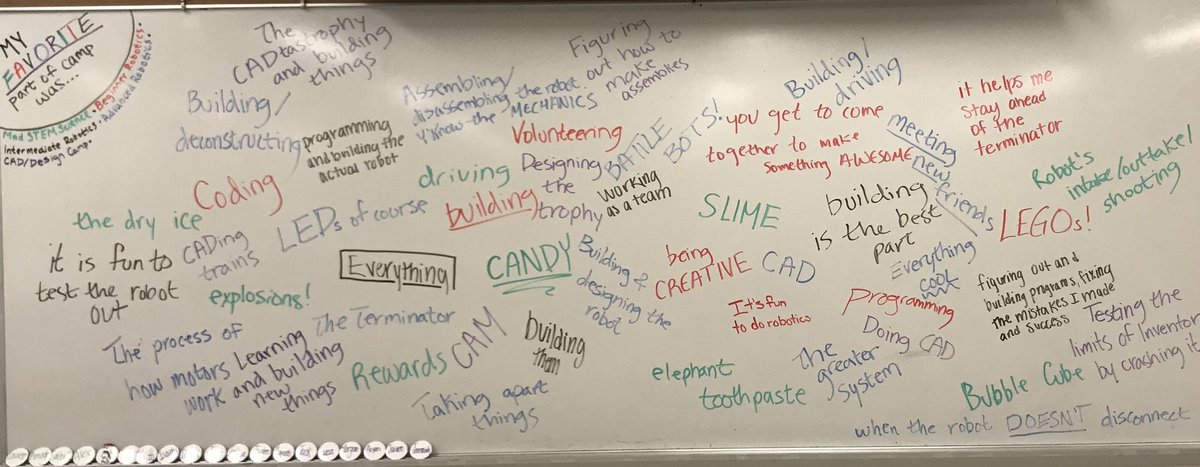 MY
FAVORITE
part of camp
was...
Mad STEM Science • Beginner Robotics •
Intermediate Robotics • Advanced Robotics •
CAD/Design Camp.
The
CADtastrophy
and building
things
Figuring
out how to
make
assemblies
Building/
deconstructing
Assembling/
disassembling the robot.
Y'know the MECHANICS
Building/
driving
it helps me
stay ahead
of the
terminator
programming
and building the
actual robot
Volunteering
BATTLE
BOTS!
you get to come
together to make
something AWESOME
meeting
new
friends
Robot's
intake/outtake/
shooting
Coding
driving
Designing
the
trophy
working
as a team
building
SLIME
building
is the best
part
LEGOs!
the dry ice
LEDs of course
it is fun to
test the robot
out
CADing
trains
Everything
CANDY
Building &
designing the
robot
being
CREATIVE
CAD
Everything
figuring out and
building programs, fixing
the mistakes I made
and success
explosions!
It's fun
to do robotics
Programming
The process of
how motors
work
Learning
and building
new
things
The Terminator
CAM
building
them
Doing CAD
Testing the
limits of Inventor
by crashing it
Rewards
elephant
toothpaste
The
greater
system
Bubble Cube
Taking apart
things
when the robot DOESN'T disconnect